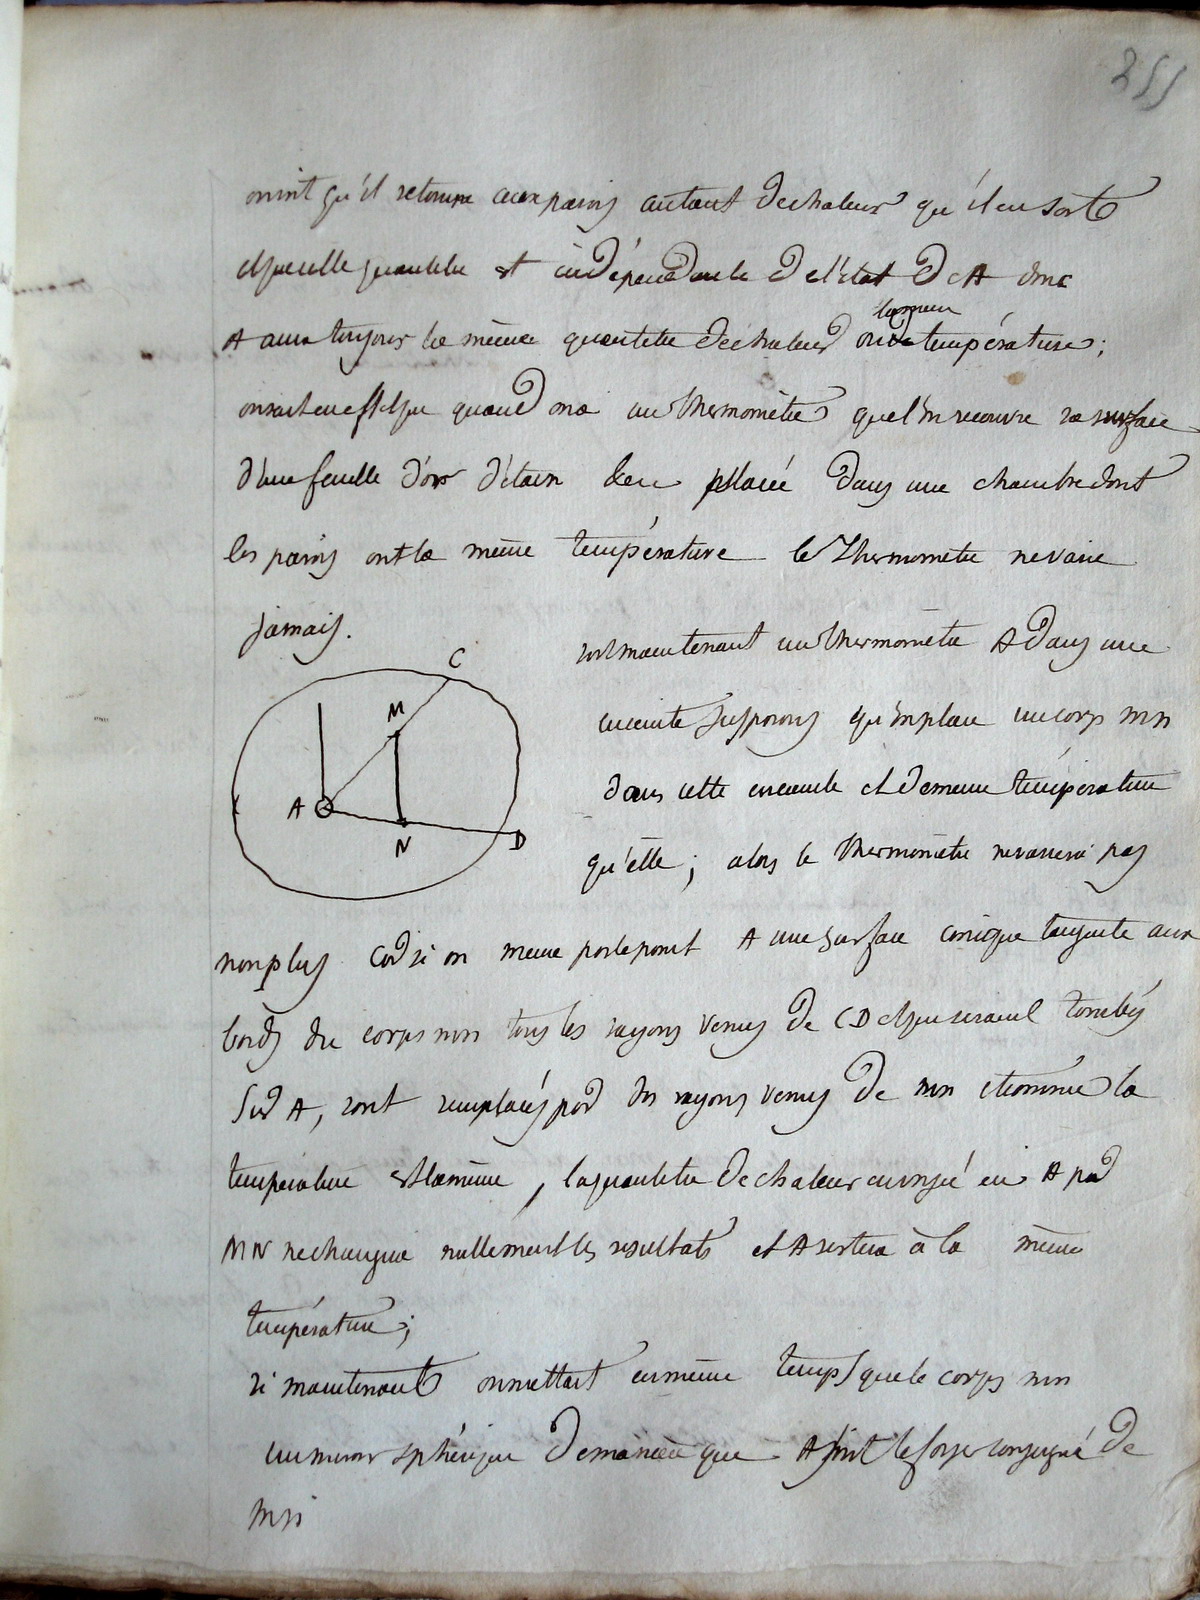 255
on voit qu'il retourne aux parois autant de chaleur qu'il en sort
et que cette quantité est indépendante de l'état de A donc
la même
A aura toujours la même quantité de chaleur ou température ;
on sait en effet que quand on a un thermomètre que l'on recouvre sa surface
d'une feuille d'or d'étain placé dans une chambre dont
les parois ont la même température le thermomètre ne varie
jamais.
soit maintenant un thermomètre A dans une
enceinte supposons qu'on place un corps mn
dans cette enceinte et de meme température
qu'elle ; alors le thermomètre ne variera pas
non plus car si on mene par le point A une surface conique tangente aux
bords du corps mn tous les rayons venus de CD et qui seraient tombés
sur A, sont remplacés par des rayons venus de mn et comme la
température est la même, la quantité de chaleur envoyé en A par
MN ne changera nullement les résultats et A restera à la même
température ;
si maintenant on mettait en même temps que le corps mn
un miroir sphérique de manière que A soit le foyer conjugué de
mn
C
M
A
N
D